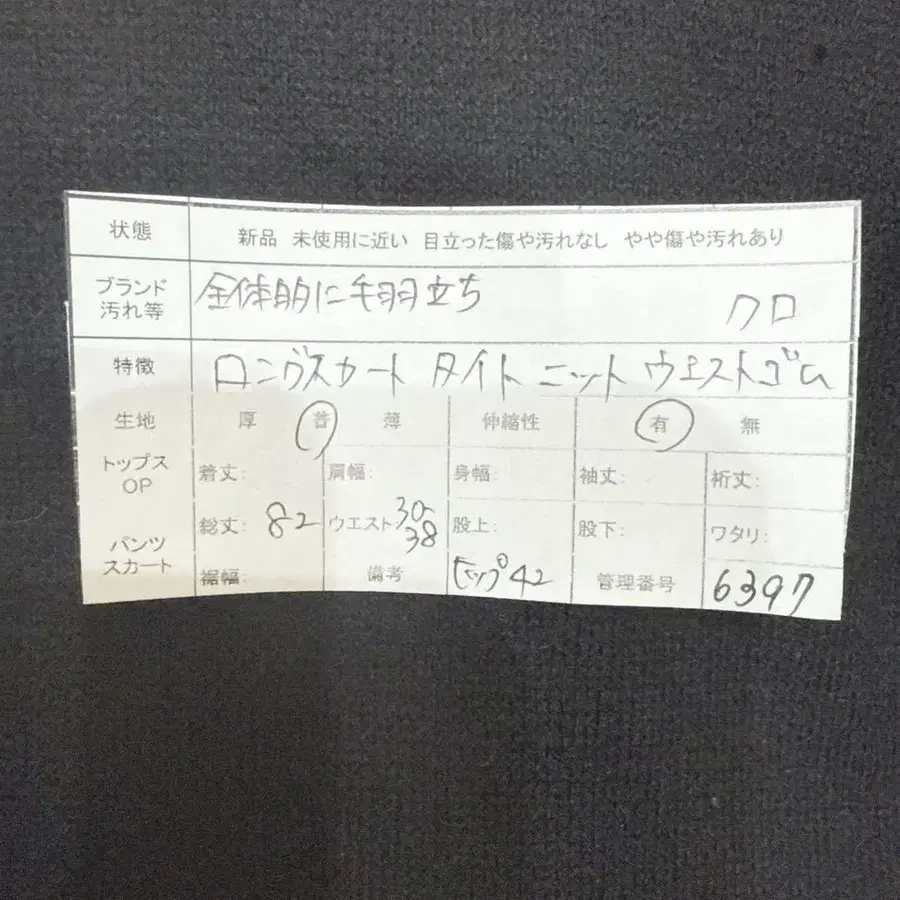 状態 新品 未使用に近い 目立った傷や汚れなし やや傷や汚れあり
ブランド 全体的に毛羽立ち
汚れ等 クロ
特徴 ロングスカート タイト ニット ウエストゴム
生地 厚 普 薄 伸縮性 有 無
トップス OP 着丈: 肩幅: 身幅: 袖丈: 裄丈:
パンツ スカート 総丈: 82 ウエスト 30~38 股上: 股下: ワタリ:
裾幅: 備考 ヒップ42 管理番号 6397